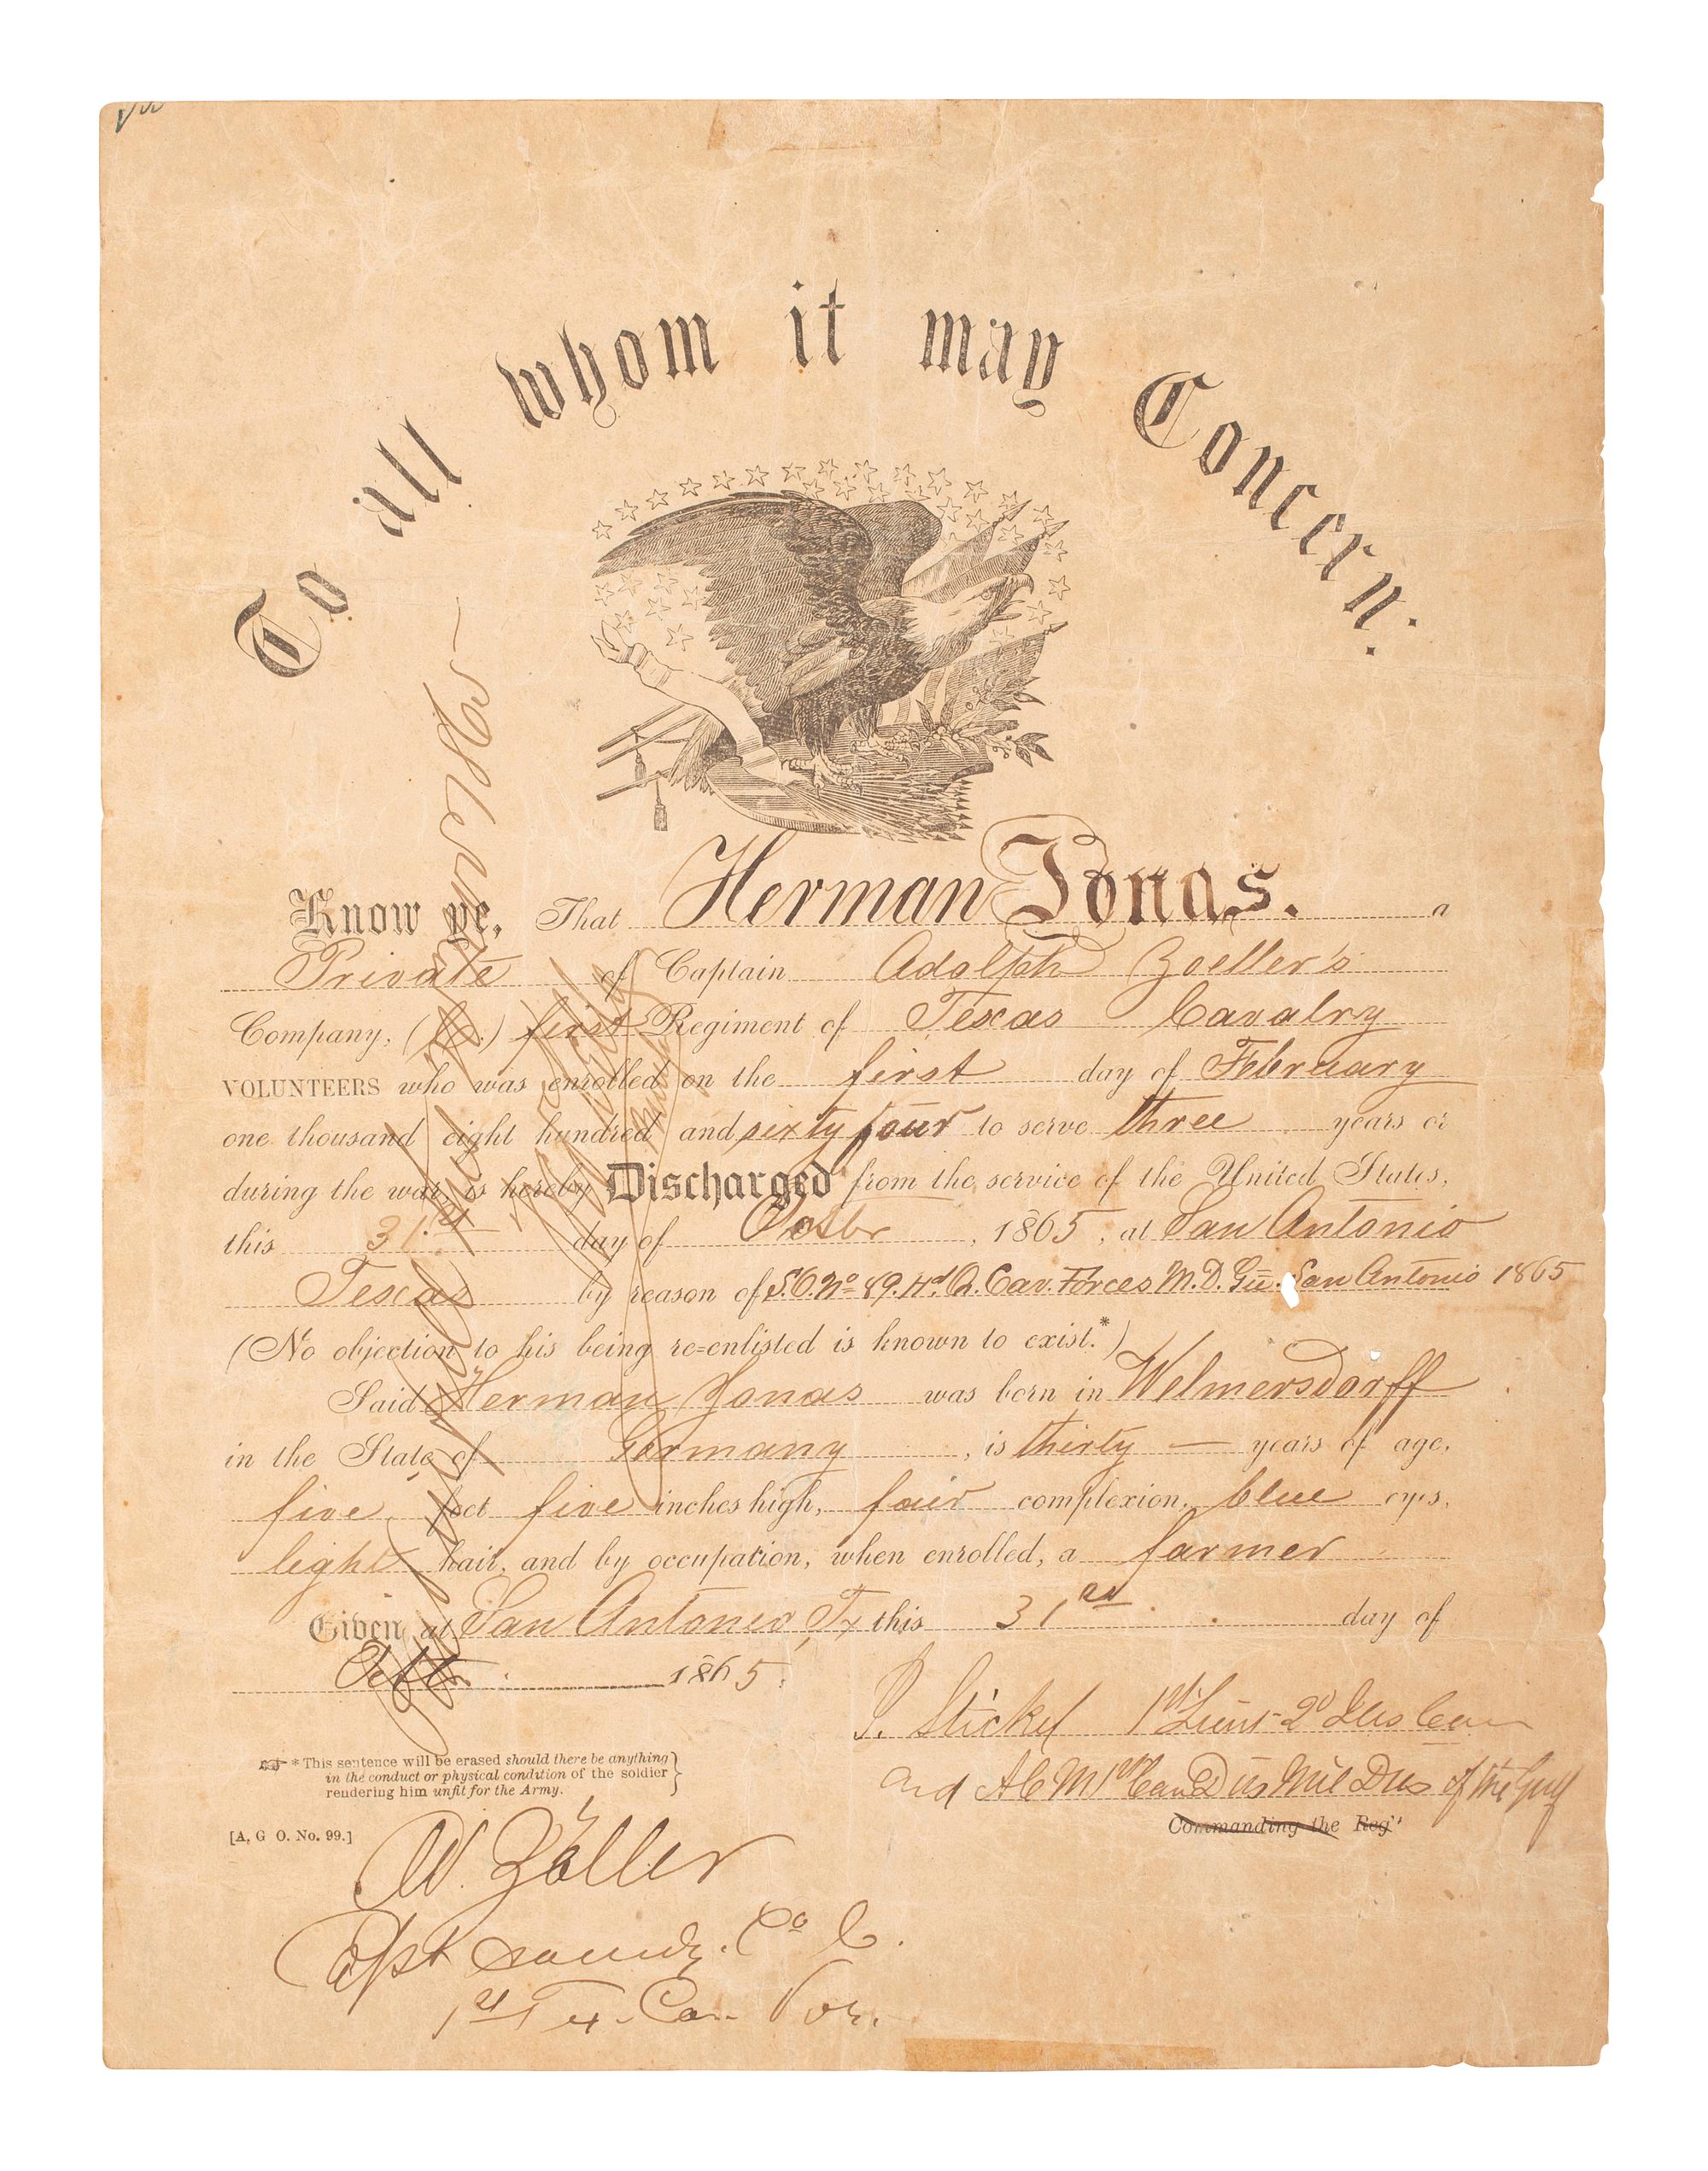 To all whom it may Concern:
Know ye, That Herman Jonas. a
Private of Captain Adolph Zoeller's
Company, (C.) first Regiment of Texas Cavalry
VOLUNTEERS who was enrolled on the first day of February
one thousand eight hundred and sixty four to serve three years or
during the war, is hereby Discharged from the service of the United States,
this 31st day of Octbr, 1865, at San Antonio
Texas by reason of S.O. No 89. Hd. Q. Cav. Forces M.D. San Antonio 1865
(No objection to his being re=enlisted is known to exist.*)
Said Herman Jonas was born in Welmersdorff
in the State of Germany, is thirty — years of age,
five feet five inches high, fair complexion, blue eyes,
light hair, and by occupation, when enrolled, a farmer
Given at San Antonio Tx this 31 day of
Octbr 1865.
1st Lieut 2d
and A C M 1st
Commanding the Reg't
☞ *This sentence will be erased should there be anything
in the conduct or physical condition of the soldier
rendering him unfit for the Army.
[A, G O. No. 99.]
Zöller
Capt Co C.
1st Tx. Cav. Vol.